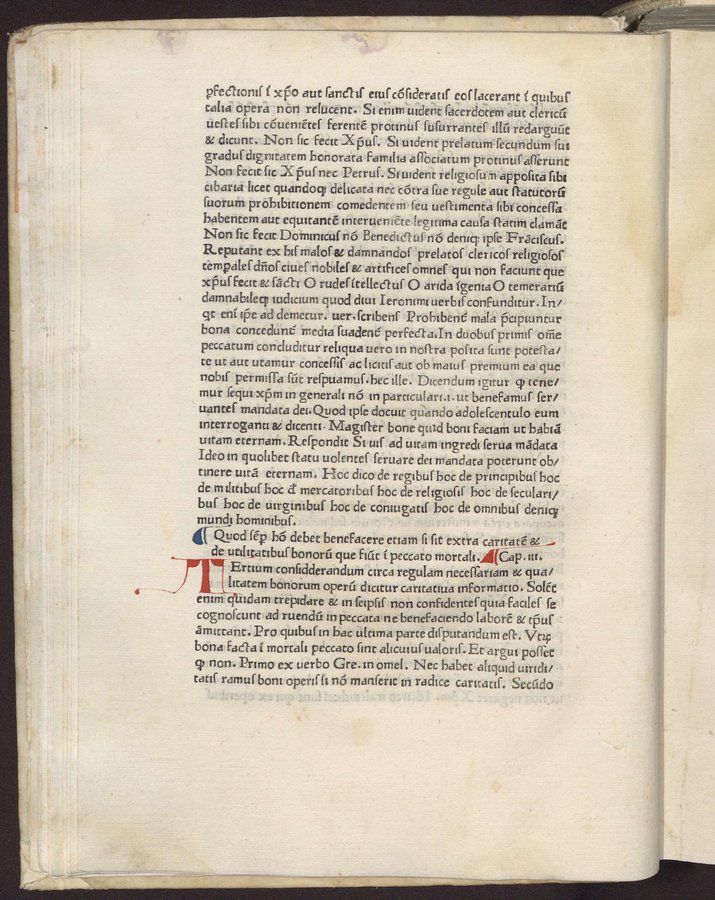 pfectionis ī xp̄o aut sanctis eius cōsideratis eos lacerant ī quibus
talia opera non relucent. Si enim uident sacerdotem aut clericū
uestes sibi cōueniētes ferentē protinus susurrantes illū redarguūt
& dicunt. Non sic fecit Xp̄us. Si uident prelatum secundum sui
gradus dignitatem honorata familia associatum protinus asserunt
Non fecit sic Xp̄us nec Petrus. Si uident religiosum apposita sibi
cibaria licet quandoqꝫ delicata nec cōtra sue regule aut statutorū
suorum prohibitionem comedentem seu uestimenta sibi concessa
habentem aut equitantē interueniēte legitima causa statim clamāt
Non sic fecit Dominicus nō Benedictus nō deniqꝫ ipse Frāciscus.
Reputant ex his malos & damnandos prelatos clericos religiosos
tempales dn̄os ciues nobiles & artifices omnes qui non faciunt que
xp̄us fecit & sācti O rudes ītellectus O arida īgenia O temerariū
damnabileqꝫ iudicium quod diui Ieronimi uerbis confunditur. In/
qt eni īpe ad demetur. uer. scribens Prohibent mala p̄cipiuntur
bona concedunt media suadent perfecta. In duobus primis om̄e
peccatum concluditur reliqua uero in nostra posita sunt potesta/
te ut aut utamur concessis ac licitis aut ob maius premium ea que
nobis permissa sūt respuamus. hec ille. Dicendum igitur ꝙ tene/
mur sequi xp̄m in generali nō in particulari. i. ut benefamus ser/
uantes mandata dei. Quod ipse docuit quando adolescentulo eum
interroganti & dicenti. Magister bone quid boni faciam ut habiā
uitam eternam. Respondit Si uis ad uitam ingredi serua mādata
Ideo in quolibet statu uolentes seruare dei mandata poterunt ob/
tinere uitā eternam. Hoc dico de regibus hoc de principibus hoc
de militibus hoc d̄ mercatoribus hoc de religiosis hoc de seculari/
bus hoc de uirginibus hoc de coniugatis hoc de omnibus deniqꝫ
mundi hominibus.
Quod sēp hō debet benefacere etiam si sit extra caritatē &
de utilitatibus bonorū que fiūt ī peccato mortali. Cap. iii.
TErtium considderandum circa regulam necessariam & qua/
litatem bonorum operū dicitur caritatiua informatio. Solēt
enim quidam trepidare & in seipsis non confidentes quia faciles se
cognoscunt ad ruendū in peccata ne benefaciendo laborē & tp̄us
āmittant. Pro quibus in hac ultima parte disputandum est. Vtꝝ
bona facta ī mortali peccato sint alicuius ualoris. Et argui posset
ꝙ non. Primo ex uerbo Gre. in omel. Nec habet aliquid uiridi/
tatis ramus boni operis si nō manserit in radice caritatis. Secūdo